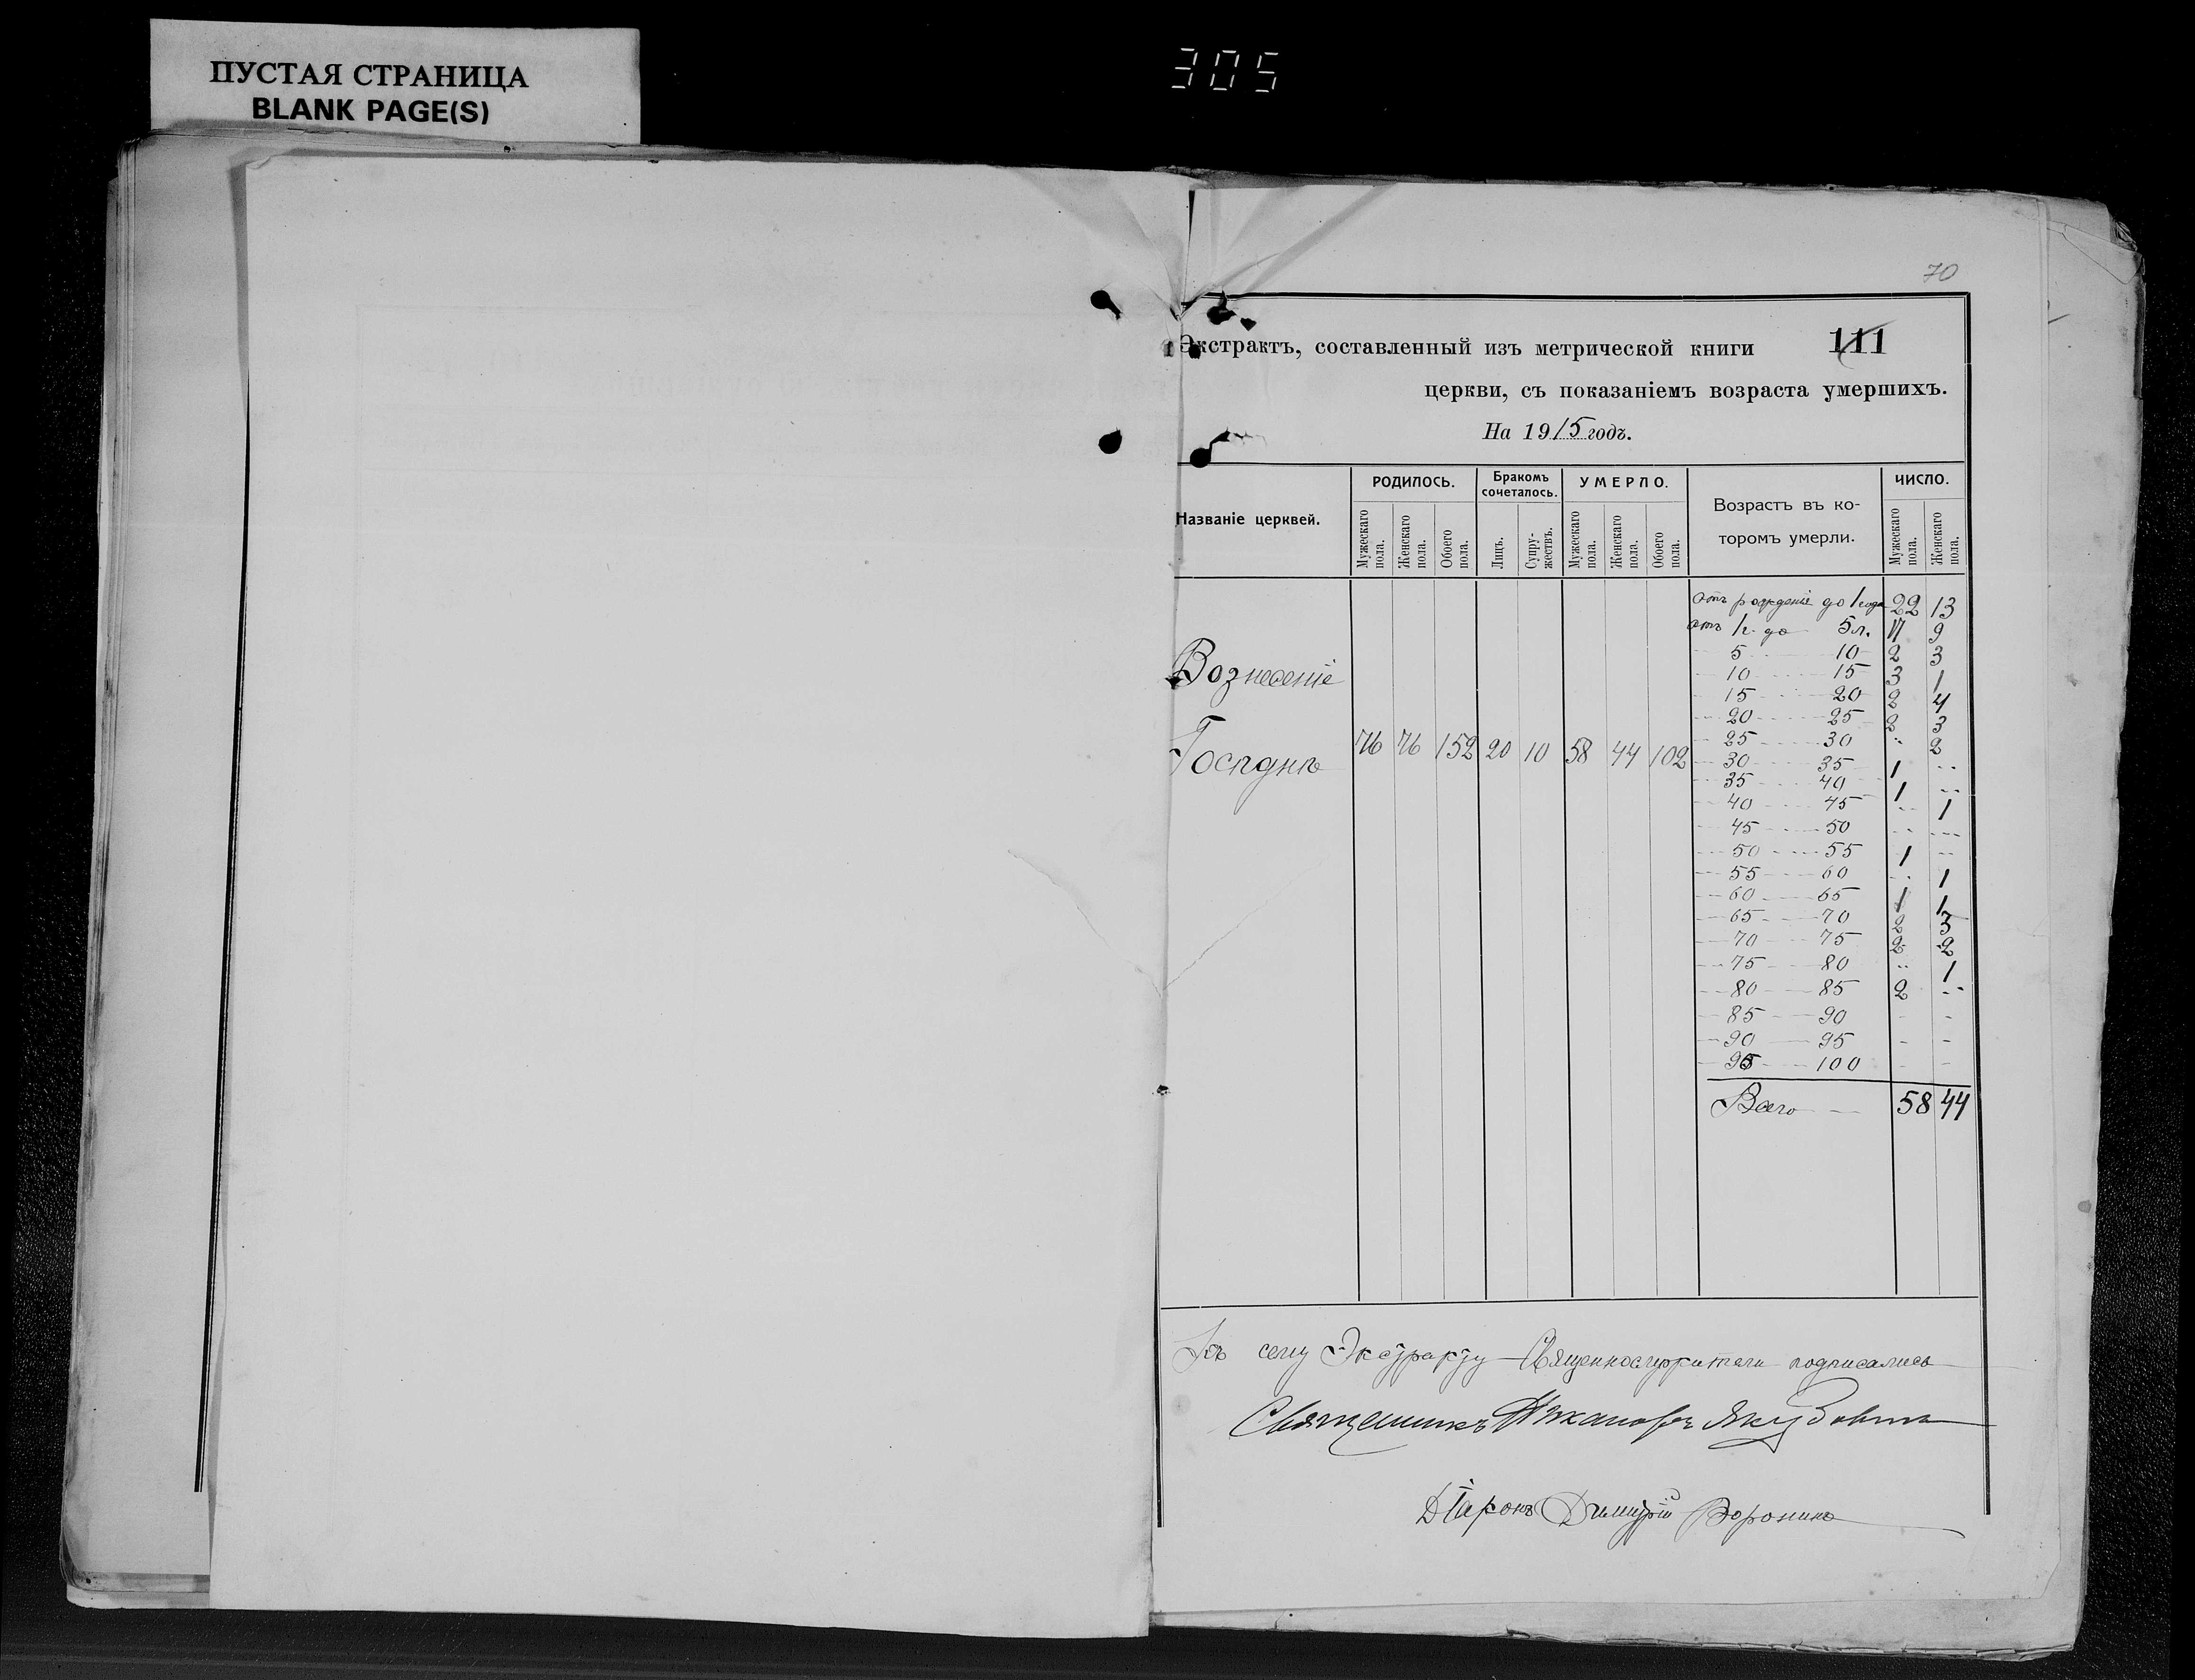 ПУСТАЯ СТРАНИЦА
BLANK PAGE(S)
305
70
Экстрактъ, составленный изъ метрической книги 111
церкви, съ показаніемъ возраста умершихъ.
На 1915 годъ.
Названіе церквей.
РОДИЛОСЬ.
Мужескаго пола.
Женскаго пола.
Обоего пола.
Бракомъ сочеталось.
Лицъ.
Супружествъ.
УМЕРЛО.
Мужескаго пола.
Женскаго пола.
Обоего пола.
Возрастъ въ ко-
торомъ умерли.
ЧИСЛО.
Мужескаго пола.
Женскаго пола.
Вознесеніе
Господнь
76 76 152 20 10 58 44 102
отъ рожденіе до 1 года 22 13
отъ 1 г. до 5 л. 17 9
5 10 2 3
10 15 3 1
15 20 2 4
20 25 2 3
25 30 " 2
30 35 1 --
35 40 1 --
40 45 -- 1
45 50 -- ---
50 55 1 --
55 60 -- 1
60 65 1 1
65 70 2 3
70 75 2 2
75 80 " 1
80 85 2 --
85 90 - -
90 95 - -
95 100 - -
Всего — 58 44
Къ сему Экстракту Священнослужители подписались
Священникъ Никаноръ Якубовичъ
Діаконъ Димитрій Воронинъ